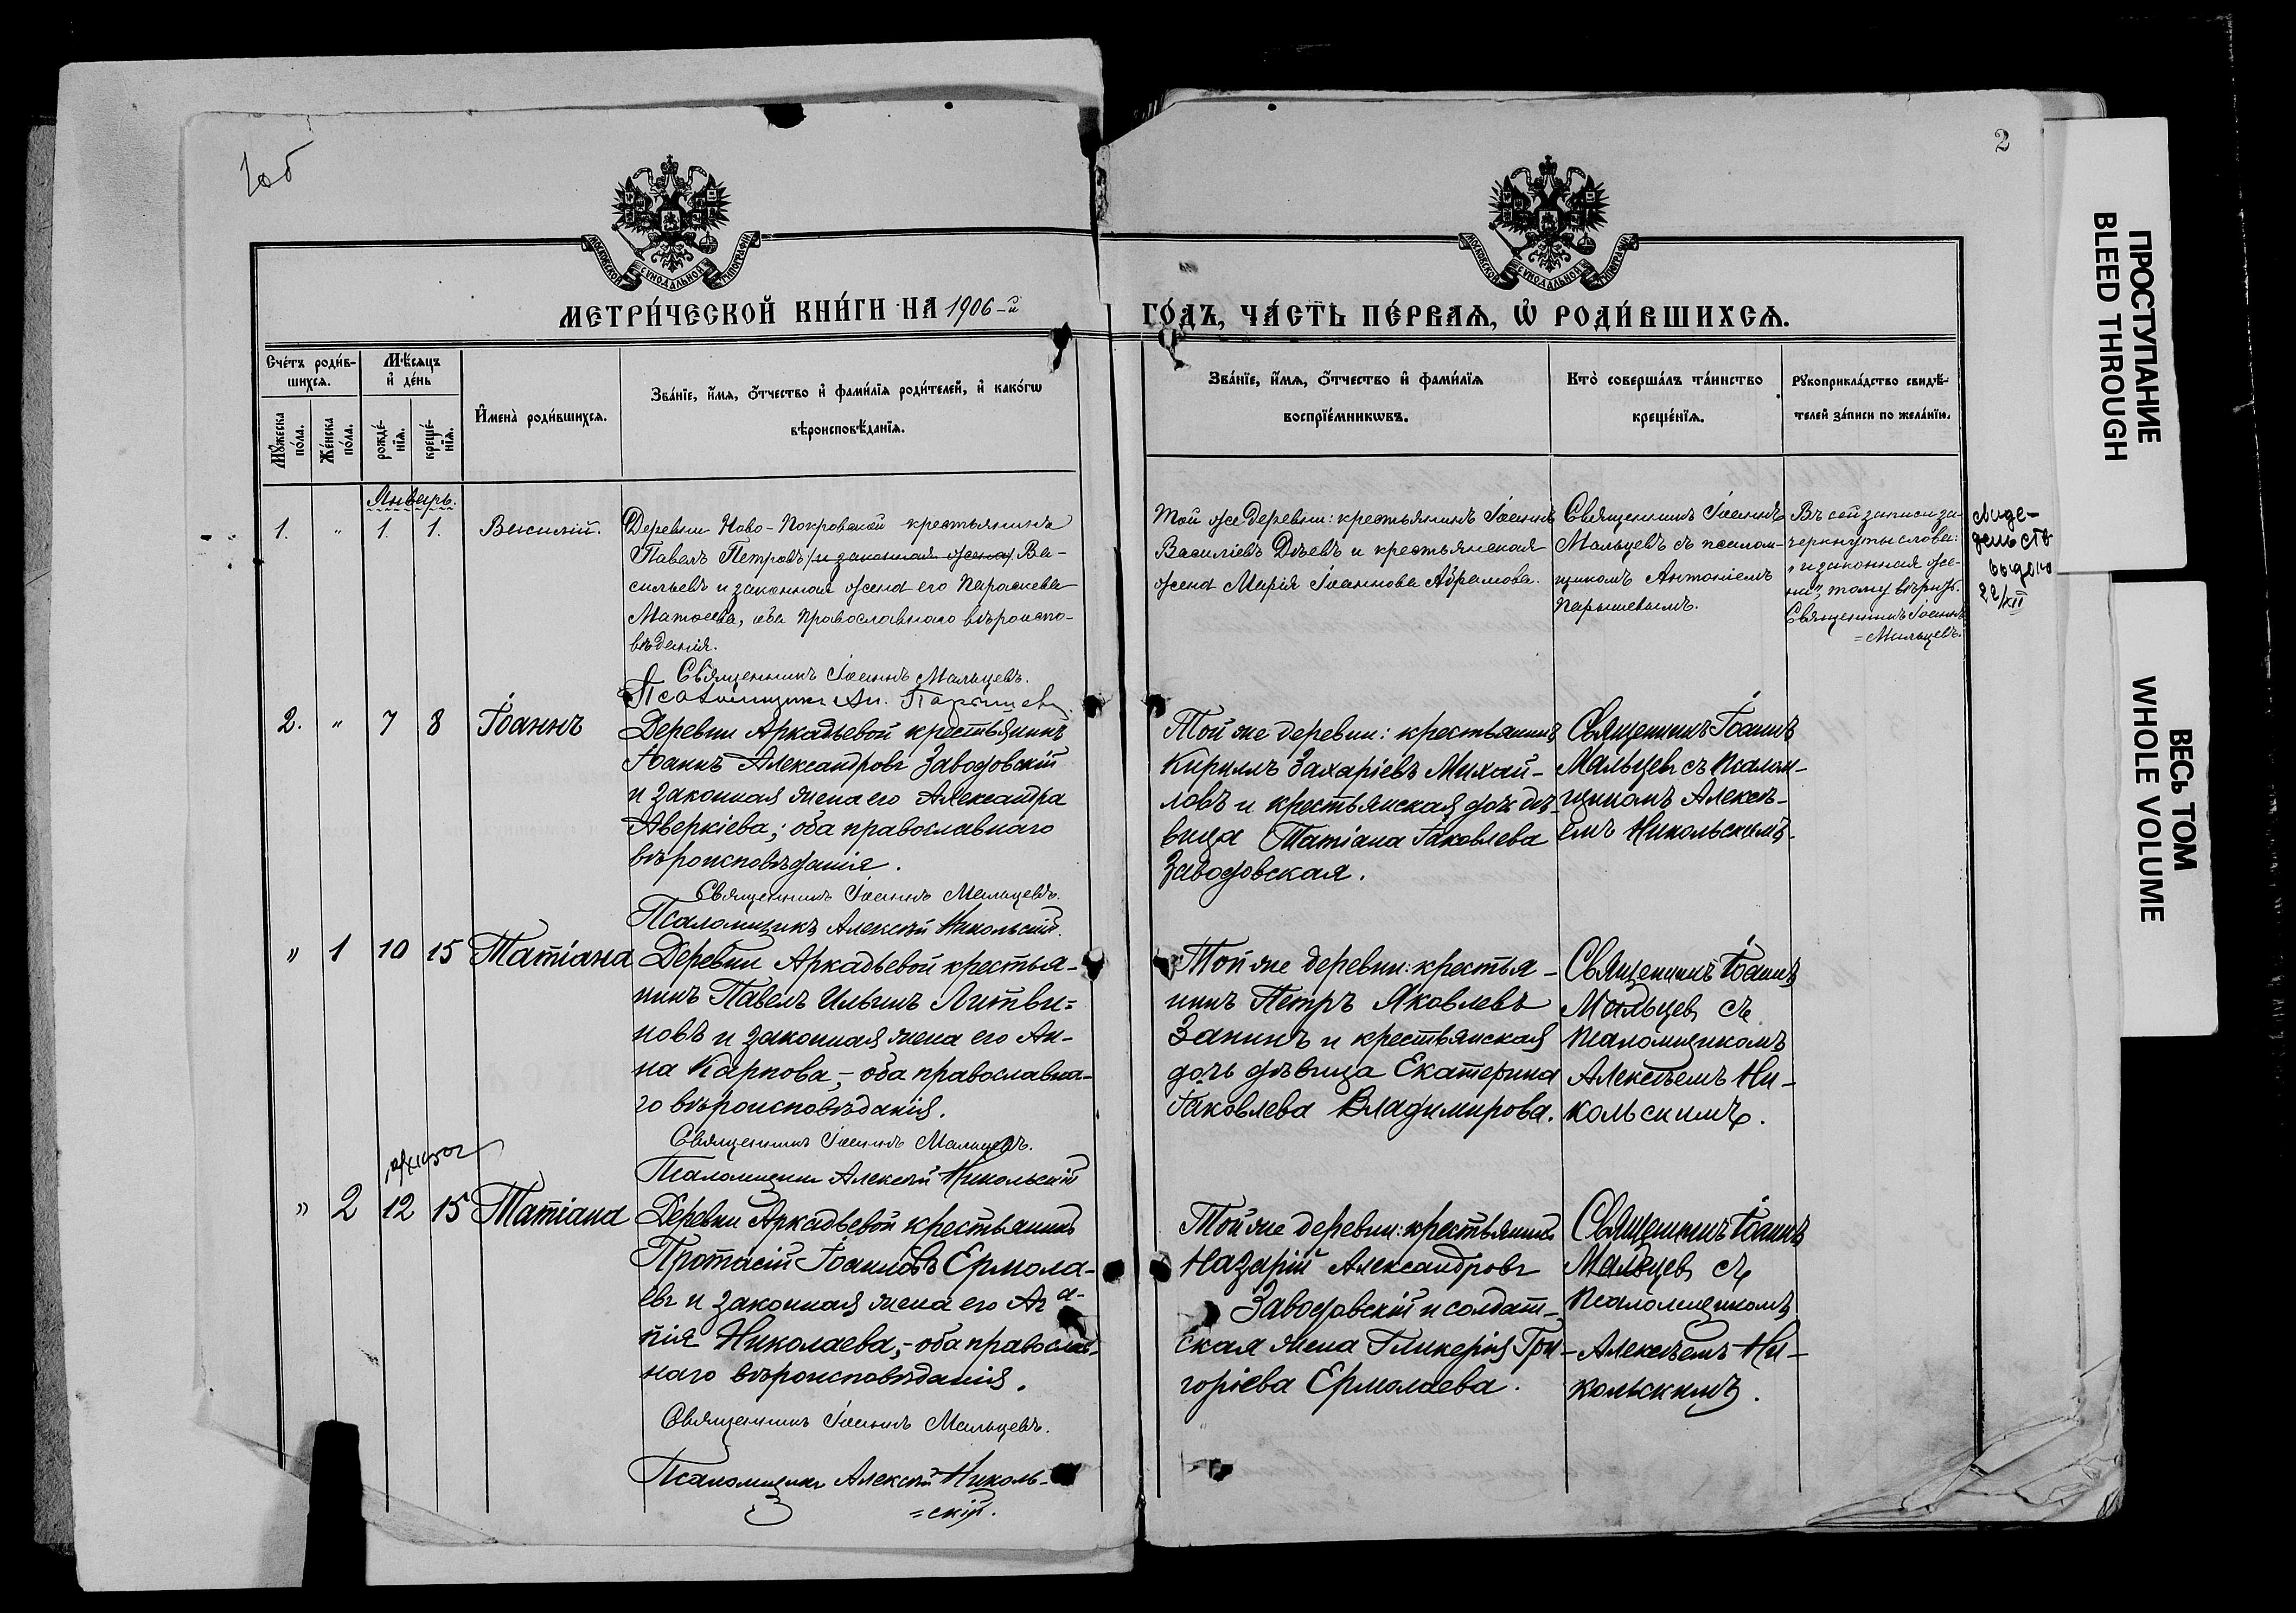 1об
2
МОСКОВСКОЙ СѴНОДАЛЬНОЙ ТИПОГРАФІИ
МОСКОВСКОЙ СѴНОДАЛЬНОЙ ТИПОГРАФІИ
МЕТРИ́ЧЕСКОЙ КНИ́ГИ НА 1906-й
ГО́ДЪ, ЧА́СТЬ ПЕ́РВАѦ, Ѡ҆ РОДИ́ВШИХСѦ.
Сче́тъ роди́в-
шихсѧ.
Мꙋ́жеска по́ла.
Же́нска по́ла.
Мѣ́сѧцъ
и҆ де́нь
рожде́-
нїѧ.
креще́-
нїѧ.
И҆мена̀ роди́вшихсѧ.
Зва́нїе, и҆́мѧ, ѻ҆́тчество и҆ фами́лїѧ роди́телей, и҆ како́гѡ
вѣроисповѣ́данїѧ.
Зва́нїе, и҆́мѧ, ѻ҆́тчество и҆ фами́лїѧ
воспрїе́мникѡвъ.
Кто̀ соверша́лъ та́инство
креще́нїѧ.
Рꙋкоприкла́дство свидѣ́-
телей за́писи по жела́нїю.
Январь.
1. " 1. 1. Василій.
Деревни Ново-Покровской крестьянинъ
Павелъ Петровъ (и законная жена) Ва-
сильевъ и законная жена его Параскева
Матѳеева, оба Православнаго вѣроиспо-
вѣданія.
Священникъ Іоаннъ Мальцевъ.
Псаломщикъ Ан. Парышевъ
Той же деревни: крестьянинъ Іоаннъ
Василіевъ Дѣевъ и крестьянская
жена Марія Іоаннова Абрамова.
Священникъ Іоаннъ
Мальцевъ съ псалом-
щикомъ Антоніемъ
Парышевымъ.
Въ сей записи за-
черкнуты слова:
"и законная же-
на", тому вѣрить.
Священникъ Іоаннъ
=Мальцевъ.
свиде-
тельств
выдано
22/XII
2. " 7 8 Іоаннъ
Деревни Аркадьевой крестьянинъ
Іоаннъ Александровъ Заводовскій
и законная жена его Александра
Аверкіева; оба православнаго
вѣроисповѣданія.
Священникъ Іоаннъ Мальцевъ.
Псаломщикъ Алексѣй Никольскій.
Той же деревни: крестьянинъ
Кириллъ Захаріевъ Михай-
ловъ и крестьянская дочь дѣ-
вица Татіана Іаковлева
Заводовская.
Священникъ Іоаннъ
Мальцевъ съ псалом-
щикомъ Алексѣ-
емъ Никольскимъ.
" 1 10 15 Татіана
Деревни Аркадьевой крестья-
нинъ Павелъ Ильинъ Литви=
новъ и законная жена его Ан-
на Карпова,- оба православна-
го вѣроисповѣданія.
Священникъ Іоаннъ Мальцевъ.
Псаломщикъ Алексѣй Никольскій
Той же деревни: крестья-
нинъ Петръ Яковлевъ
Занинъ и крестьянская
дочь дѣвица Екатерина
Іаковлева Владимирова.
Священникъ Іоаннъ
Мальцевъ съ
псаломщикомъ
Алексѣемъ Ни-
кольскимъ.
" 2 12 15 Татіана
Деревни Аркадьевой крестьянинъ
Протасій Іоанновъ Ермола-
евъ и законная жена его Ага-
пія Николаева,- оба православ-
наго вѣроисповѣданія.
Священникъ Іоаннъ Мальцевъ.
Псаломщикъ Алексѣй Николь-
=скій.
Той же деревни: крестьянинъ
Назарій Александровъ
Заводовскій и солдат-
ская жена Гликерія Гри-
горіева Ермолаева.
Священникъ Іоаннъ
Мальцевъ съ
псаломщикомъ
Алексѣемъ Ни-
кольскимъ.
ПРОСТУПАНИЕ
BLEED THROUGH
ВЕСЬ ТОМ
WHOLE VOLUME